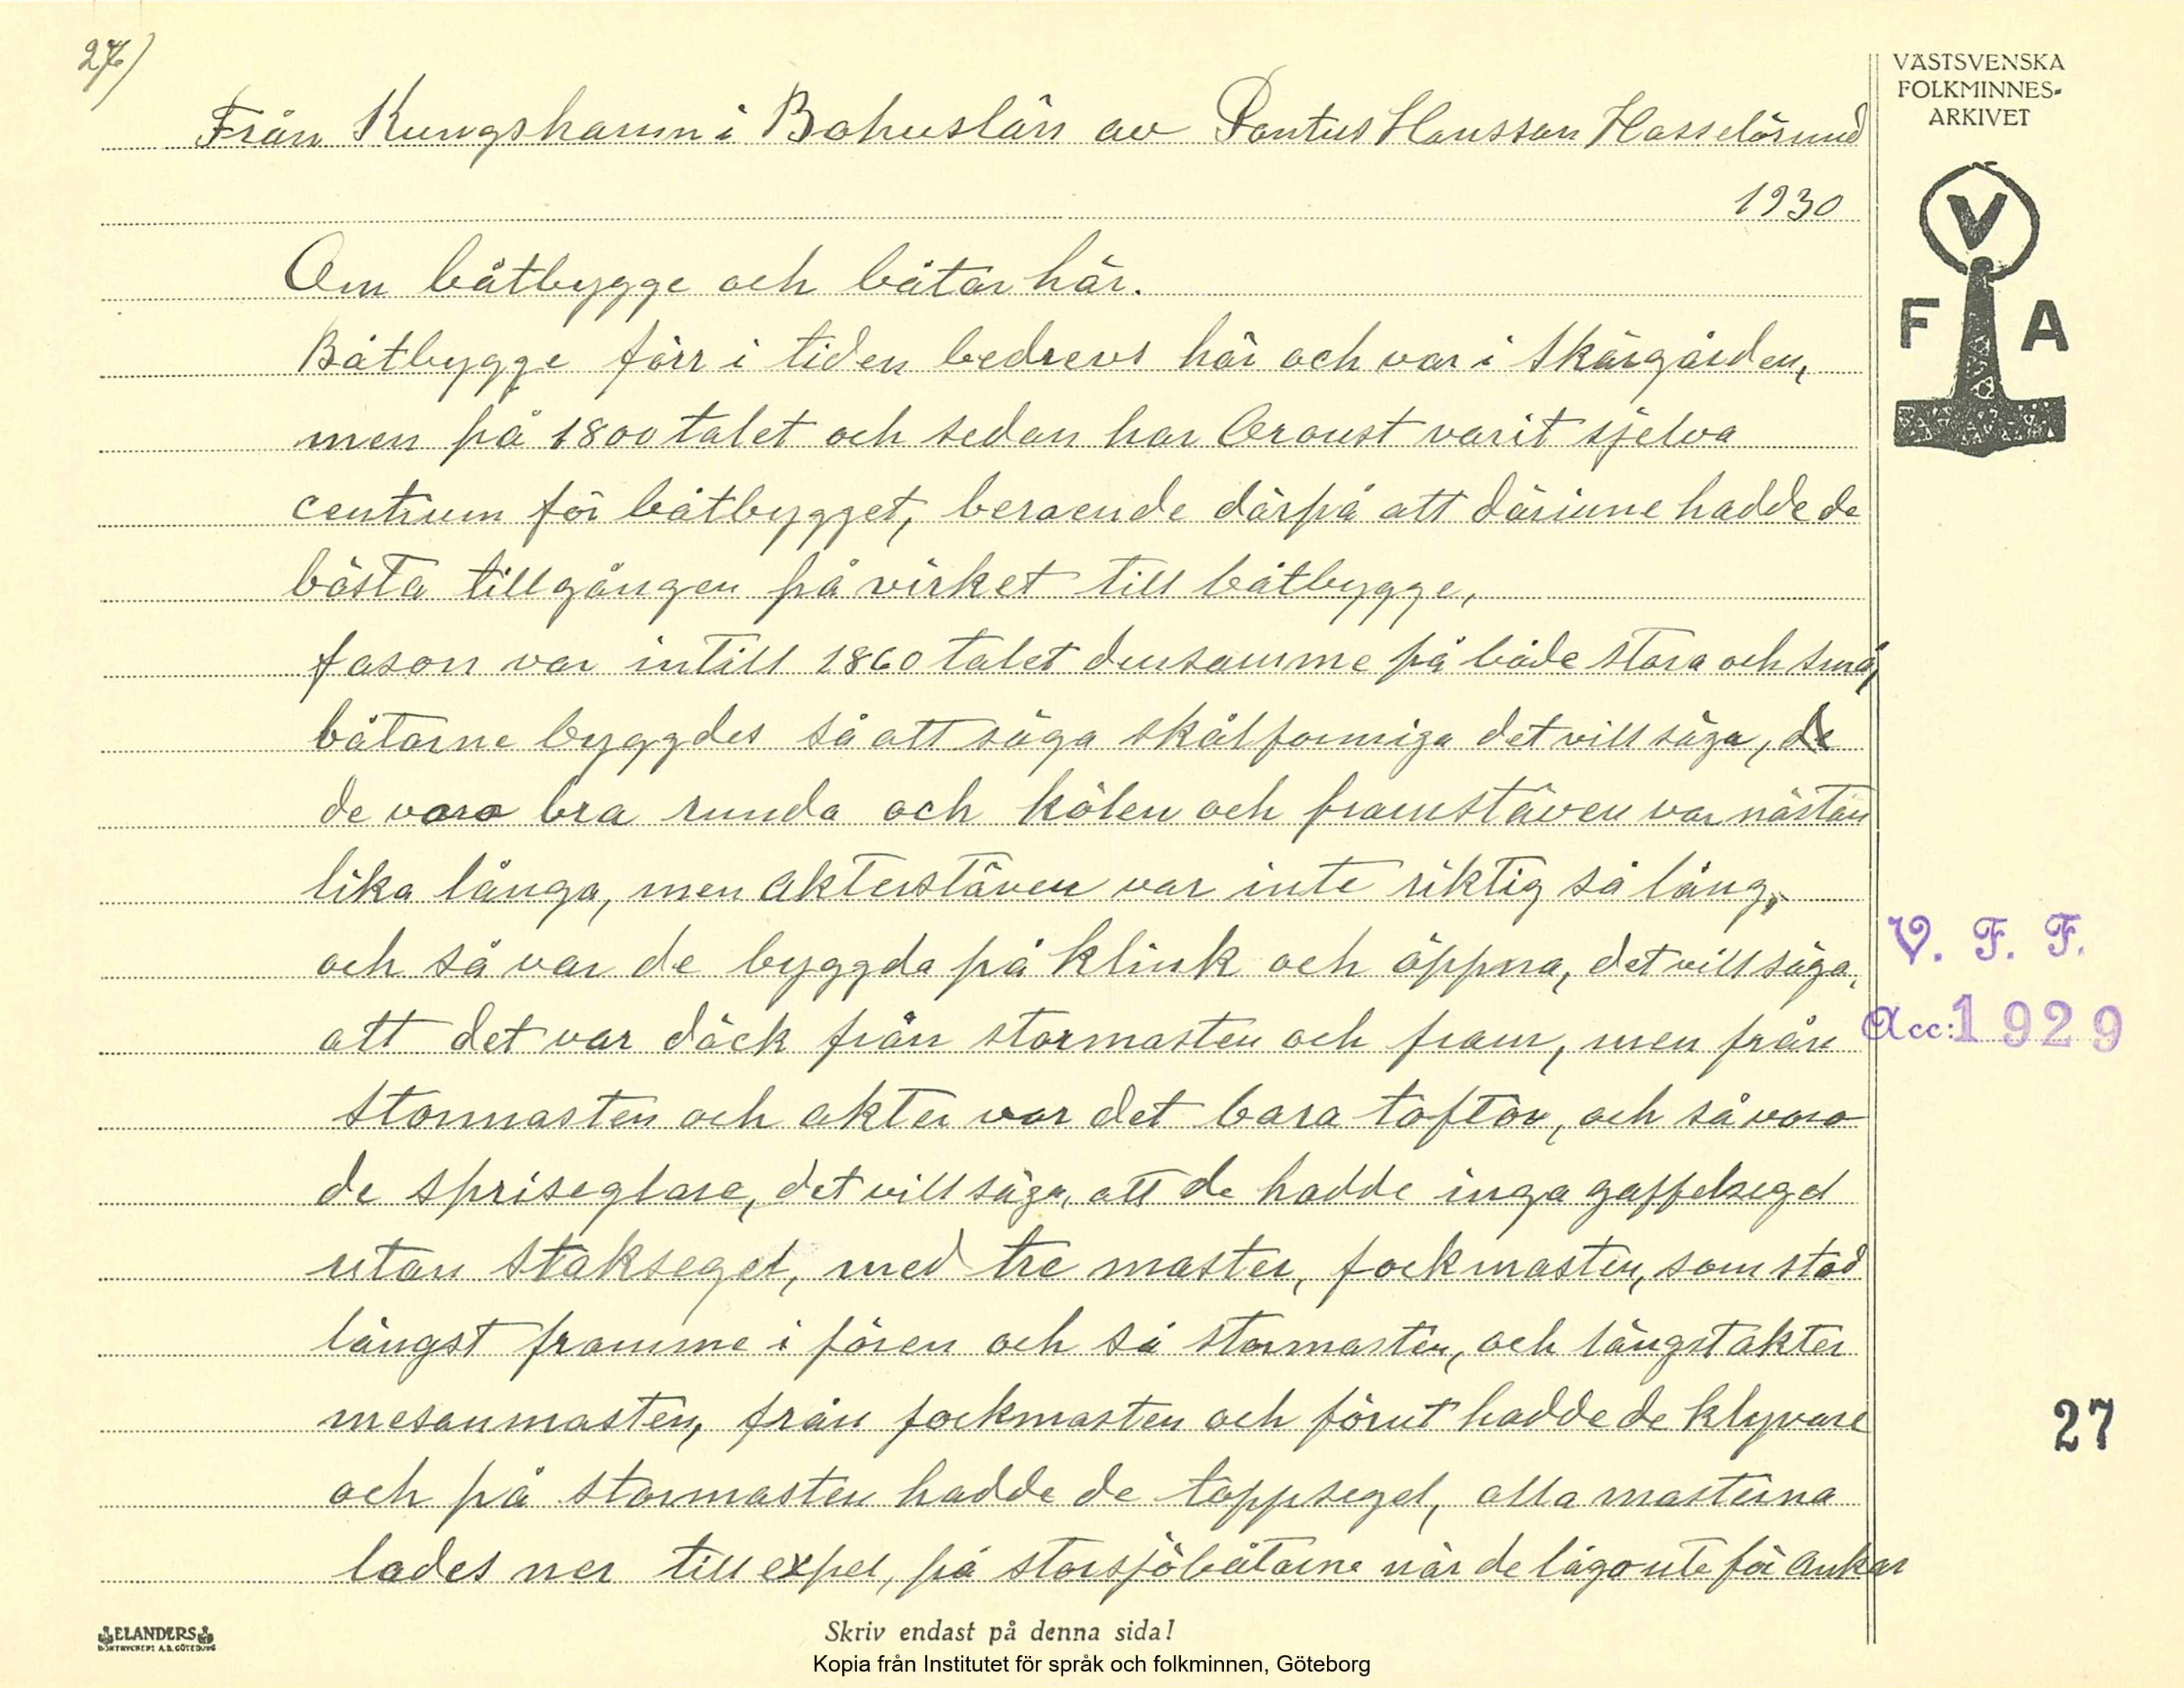 27)
VÄSTSVENSKA
FOLKMINNES-
ARKIVET
Från Kungshamn i Bohuslän av Pontus Hansson Hasselösund
1930
V
F A
Om båtbygge och båtar här.
Båtbygge förr i tiden bedrevs här och var i Skärgården,
men på 1800 talet och sedan har Oroust varit sjelva
centrum för båtbygget, beroende därpå att därinne hadde de
bästa tillgången på virket till båtbygge,
fason var intill 1860 talet densamme på både stora och små,
båtarne byggdes så att säga skålformiga det vill säga, de
de voro bra runda och kölen och framstäven var nästan
lika långa, men akterstäven var inte riktig så lång,
och så var de byggda på klink och öppna, det vill säga,
att det var däck från stormasten och fram, men från
stormasten och akter var det bara toftor, och så voro
de spriseglare, det vill säga, att de hadde inga gaffelsegel
utan stakseget, med tre master, fockmasten, som stod
längst framme i fören och så stormasten, och längst akter
mesanmasten, från fockmasten och förut hadde de klyvare
och på stormasten hadde de toppsegel, alla masterna
lades ner till expel, på storsjöbåtarne när de lågo ute för ankar
V. F. F.
Acc: 1929
27
ELANDERS
BOKTRYCKERI A.B. GÖTEBORG
Skriv endast på denna sida!
Kopia från Institutet för språk och folkminnen, Göteborg